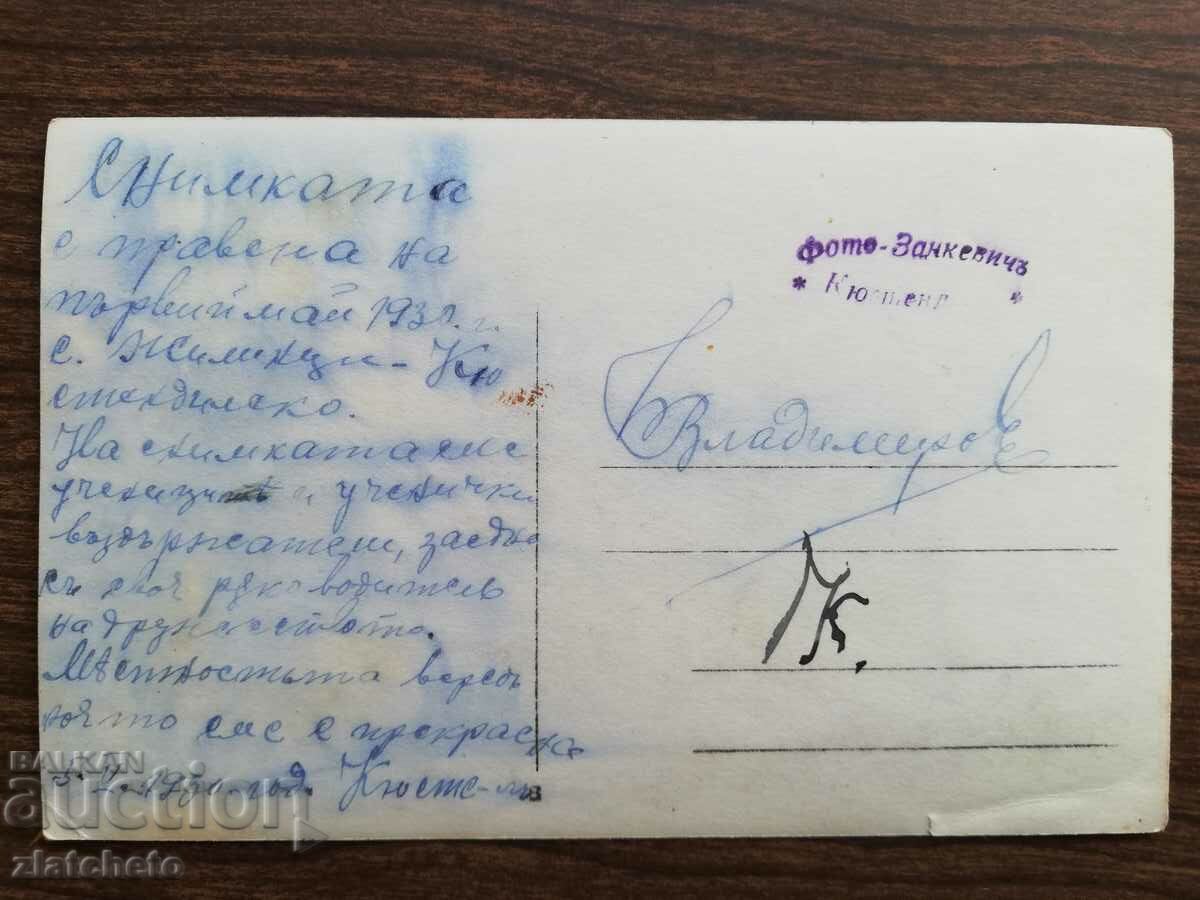 Снимката
е правена на
първий май 193 г.
с. Жилинци - Кю
стендилско.
На снимката сме
ученицитѣ и ученички
въздържатели, заедно
съ своя рѫководител
на дружеството.
Мѣстностьта
която сме е прекрасна
год. Кюсте-лъ
Фото-Занкевичъ
* Кюстенд *
Владимировъ
К.
BALKAN
auction
zlatcheto